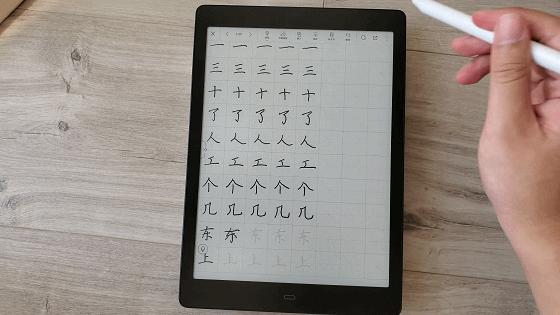 一 一 一 一 一
三 三 三 三 三
十 十 十 十 十
了 了 了 了 了
人 人 人 人 人
工 工 工 工 工
个 个 个 个 个
几 几 几 几 几
东 东 东 东 东
上 上 上 上 上